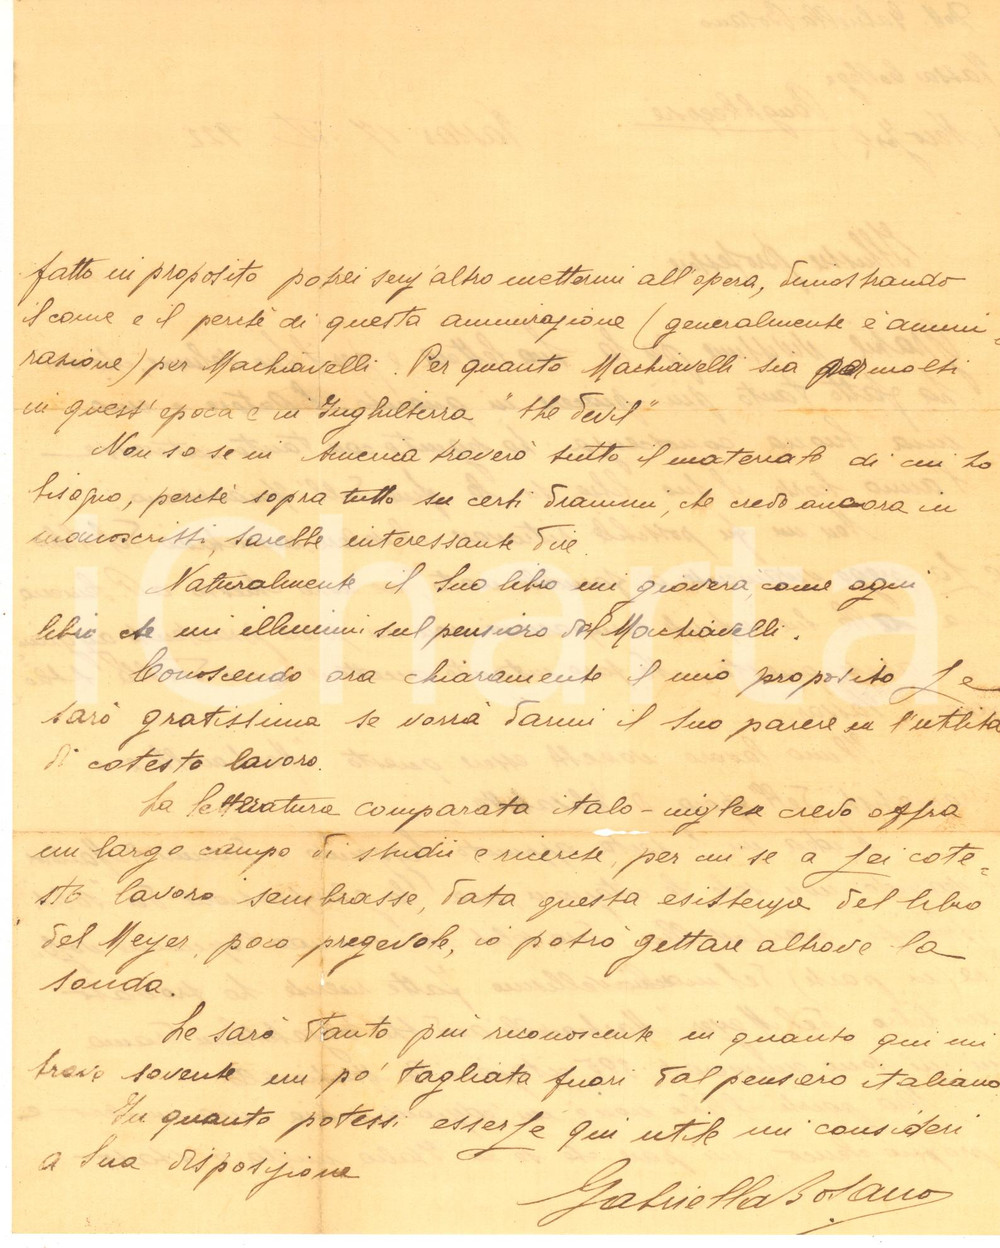 fatto in proposito potrei senz'altro mettermi all'opera, dimostrando
il come e il perchè di questa ammirazione (generalmente è ammi-
razione) per Machiavelli. Per quanto Machiavelli sia per molti
in quest'epoca e in Inghilterra "the devil"
Non so se in America troverò tutto il materiale di cui ho
bisogno, perchè sopra tutto su certi drammi, che credo ancora in
manoscritti, sarebbe interessante dire.
Naturalmente il Suo libro mi gioverà, come ogni
libro che mi illumini sul pensiero del Machiavelli.
Conoscendo ora chiaramente il mio proposito Le
sarò gratissima se vorrà darmi il Suo parere su l'utilità
di cotesto lavoro.
La letteratura comparata italo-inglese credo offra
un largo campo di studii e ricerche, per cui se a Lei cote-
sto lavoro sembrasse, data questa esistenza del libro
del Meyer, poco pregevole, io potrò gettare altrove la
sonda.
Le sarò tanto più riconoscente in quanto qui mi
trovo sovente un po' tagliata fuori dal pensiero italiano
In quanto potessi esserLe qui utile mi consideri
a Sua disposizione
Gabriella Bosano
iCharta